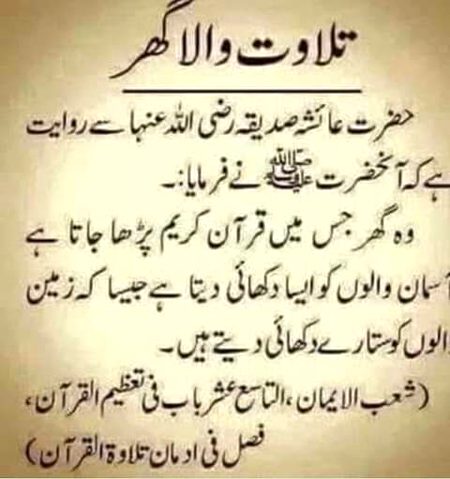 تلاوت والا گھر
حضرت عائشہ صدیقہ رضی اللہ عنہا سے روایت
ہے کہ آنحضرت ﷺ نے فرمایا:۔
وہ گھر جس میں قرآن کریم پڑھا جاتا ہے
آسمان والوں کو ایسا دکھائی دیتا ہے جیسا کہ زمین
والوں کو ستارے دکھائی دیتے ہیں۔
(شعب الایمان، التاسع عشر باب فی تعظیم القرآن،
فصل فی ادمان تلاوۃ القرآن)